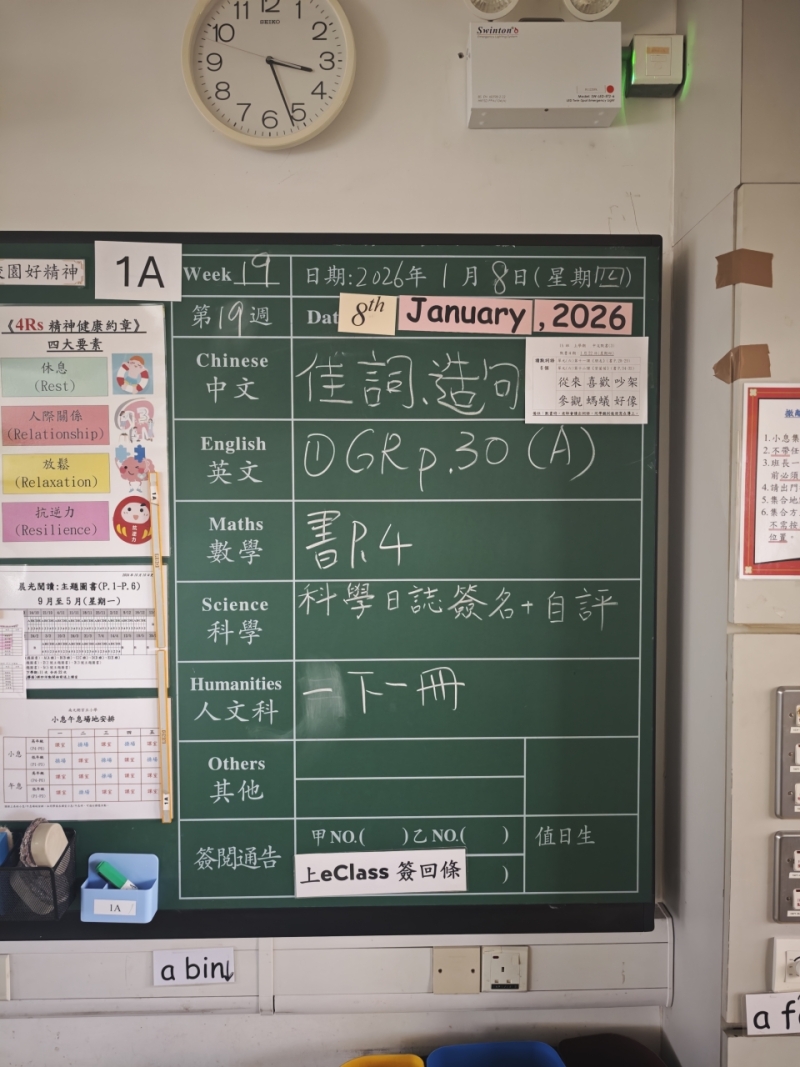 12
1
2
3
4
5
6
7
8
9
10
11
SEIKO
Swinton
園好精神
1A
Week 19
日期:2026年1月8日(星期四)
第19週
Dat 8th January, 2026
《4Rs 精神健康約章》
四大要素
休息
(Rest)
人際關係
(Relationship)
放鬆
(Relaxation)
抗逆力
(Resilience)
抗逆力
Chinese
中文
佳詞、造句
從來 喜歡 吵架
參觀 螞蟻 好像
English
英文
① GR p.30 (A)
Maths
數學
書P.4
Science
科學
科學日誌簽名+自評
Humanities
人文科
一下一冊
Others
其他
簽閱通告
甲NO.( )乙NO.( )
上eClass 簽回條
)
值日生
晨光閱讀:主題圖書(P.1-P.6)
9月至5月(星期一)
小息午息場地安排
一 二 三 四 五
小息
午息
1A
a bin
1.小息集
2.不帶任
3.班長一
前必須
4.請出門
5.集合地
6.集合方
不需按
位置。
a f